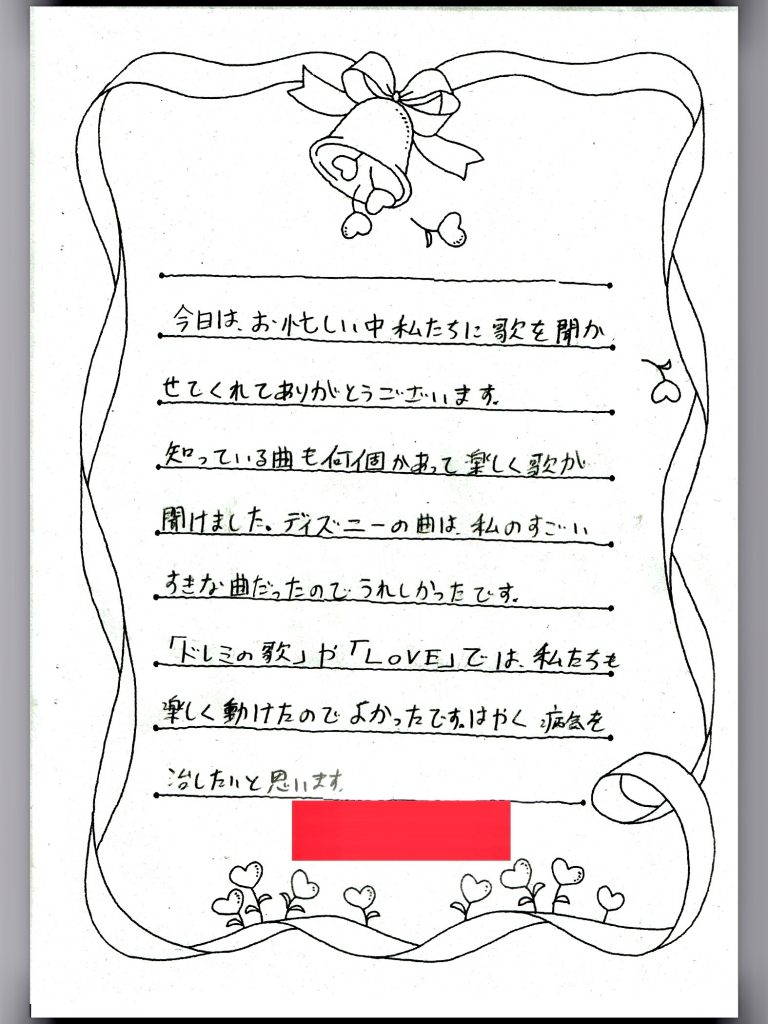 今日は、お忙しい中私たちに歌を聞か
せてくれてありがとうございます。
知っている曲も何個かあって楽しく歌が
聞けました。ディズニーの曲は、私のすごい
すきな曲だったのでうれしかったです。
「ドレミの歌」や「LOVE」では、私たちも
楽しく動けたのでよかったです。はやく病気を
治したいと思います。